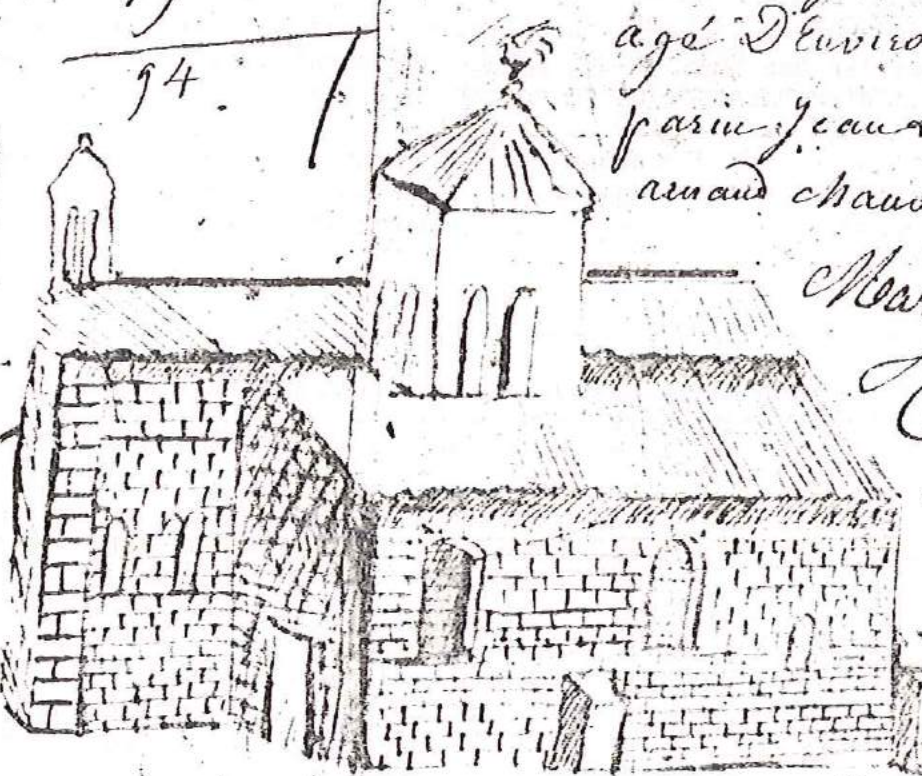 94
agé D'Enviro
parin Jean
arnaud chau
Ma